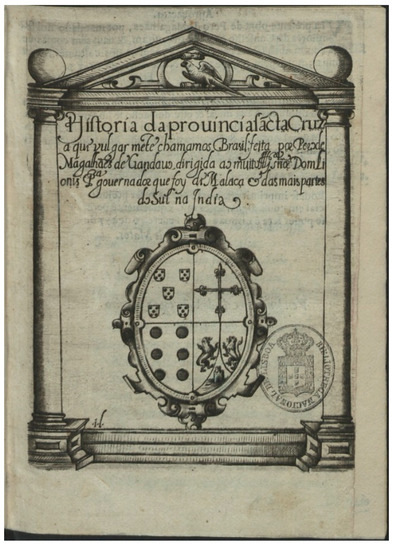 Historia da prouincia sãcta Cruz
a que vulgarmẽte chamamos Brasil, feita por Pero de
Magalhães de Gandauo, dirigida ao muito Illᵉ sñor Dom Li
onis Pᵃ gouernador que foy de Malaca & das mais partes
do Sul na India
BIBLIOTHECA NACIONAL DE LISBOA